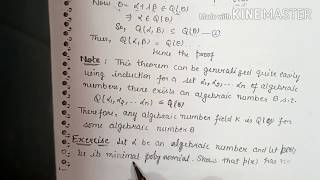 Now θ = α+λβ ∈ Q(α,β)
⇒ α ∈ Q(θ)
So, Q(α,β) ≤ Q(θ) —②
Thus, Q(α,β) = Q(θ)
Hence the proof
Note: This theorem can be generalized quite easily
using induction for a set α₁, α₂, ... αn of algebraic
numbers, there exists an algebraic number θ s.t.
Q(α₁, α₂, ... αn) = Q(θ)
Therefore, any algebraic number field K is Q(θ) for
some algebraic number θ
Exercise Let α be an algebraic number and let p(x)
be its minimal polynomial. Show that p(x) has no
Made with
KINEMASTER